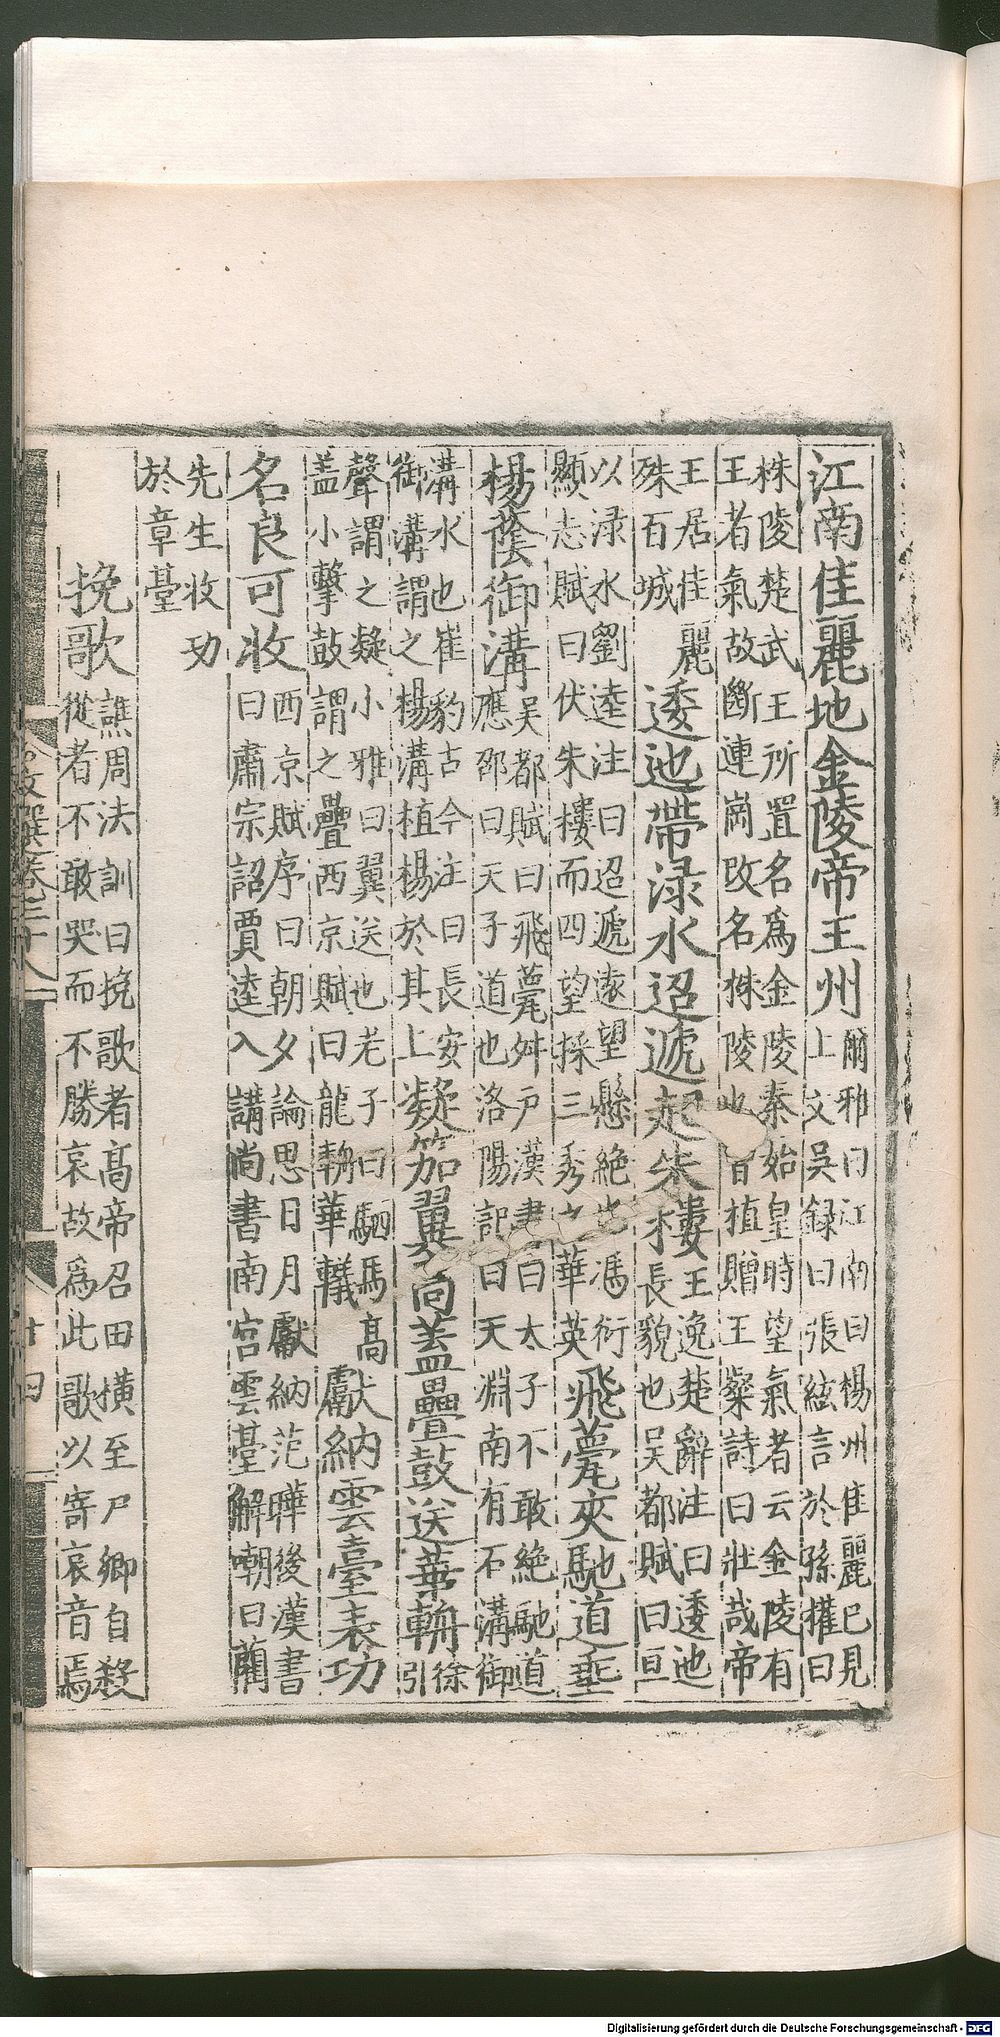 江南佳麗地金陵帝王州爾雅曰江南曰楊州佳麗已見
上文吳録曰張紘言於孫權曰
株陵楚武王所置名為金陵秦始皇時望氣者云金陵有
王者氣故斷連崗改名株陵也曹植贈王粲詩曰壯哉帝
王居佳麗
殊百城
逶迤帶渌水迢遞起朱樓王逸楚辭注曰逶迤
長貌也吳都賦曰亘
以渌水劉逵注曰迢遞遠望懸絶也馮衍
顯志賦曰伏朱樓而四望採三秀之華英
飛甍夾馳道垂
楊蔭御溝吳都賦曰飛甍舛户漢書曰太子不敢絶馳道
應邵曰天子道也洛陽記曰天淵南有石溝御
溝水也崔豹古今注曰長安
御溝謂之楊溝植楊於其上
凝笳翼高蓋疊鼓送華輈徐
引
聲謂之凝小雅曰翼送也老子曰駟馬高
盖小擊鼓謂之疊西京賦曰龍輈華轙
獻納雲臺表功
名良可收西京賦序曰朝夕論思日月獻納范曄後漢書
曰肅宗詔賈逵入講尚書南宮雲臺解嘲曰藺
先生收功
於章臺
挽歌譙周法訓曰挽歌者高帝召田橫至尸卿自殺
從者不敢哭而不勝哀故為此歌以寄哀音焉
文選卷二十八
十四
Digitalisierung gefördert durch die Deutsche Forschungsgemeinschaft - DFG